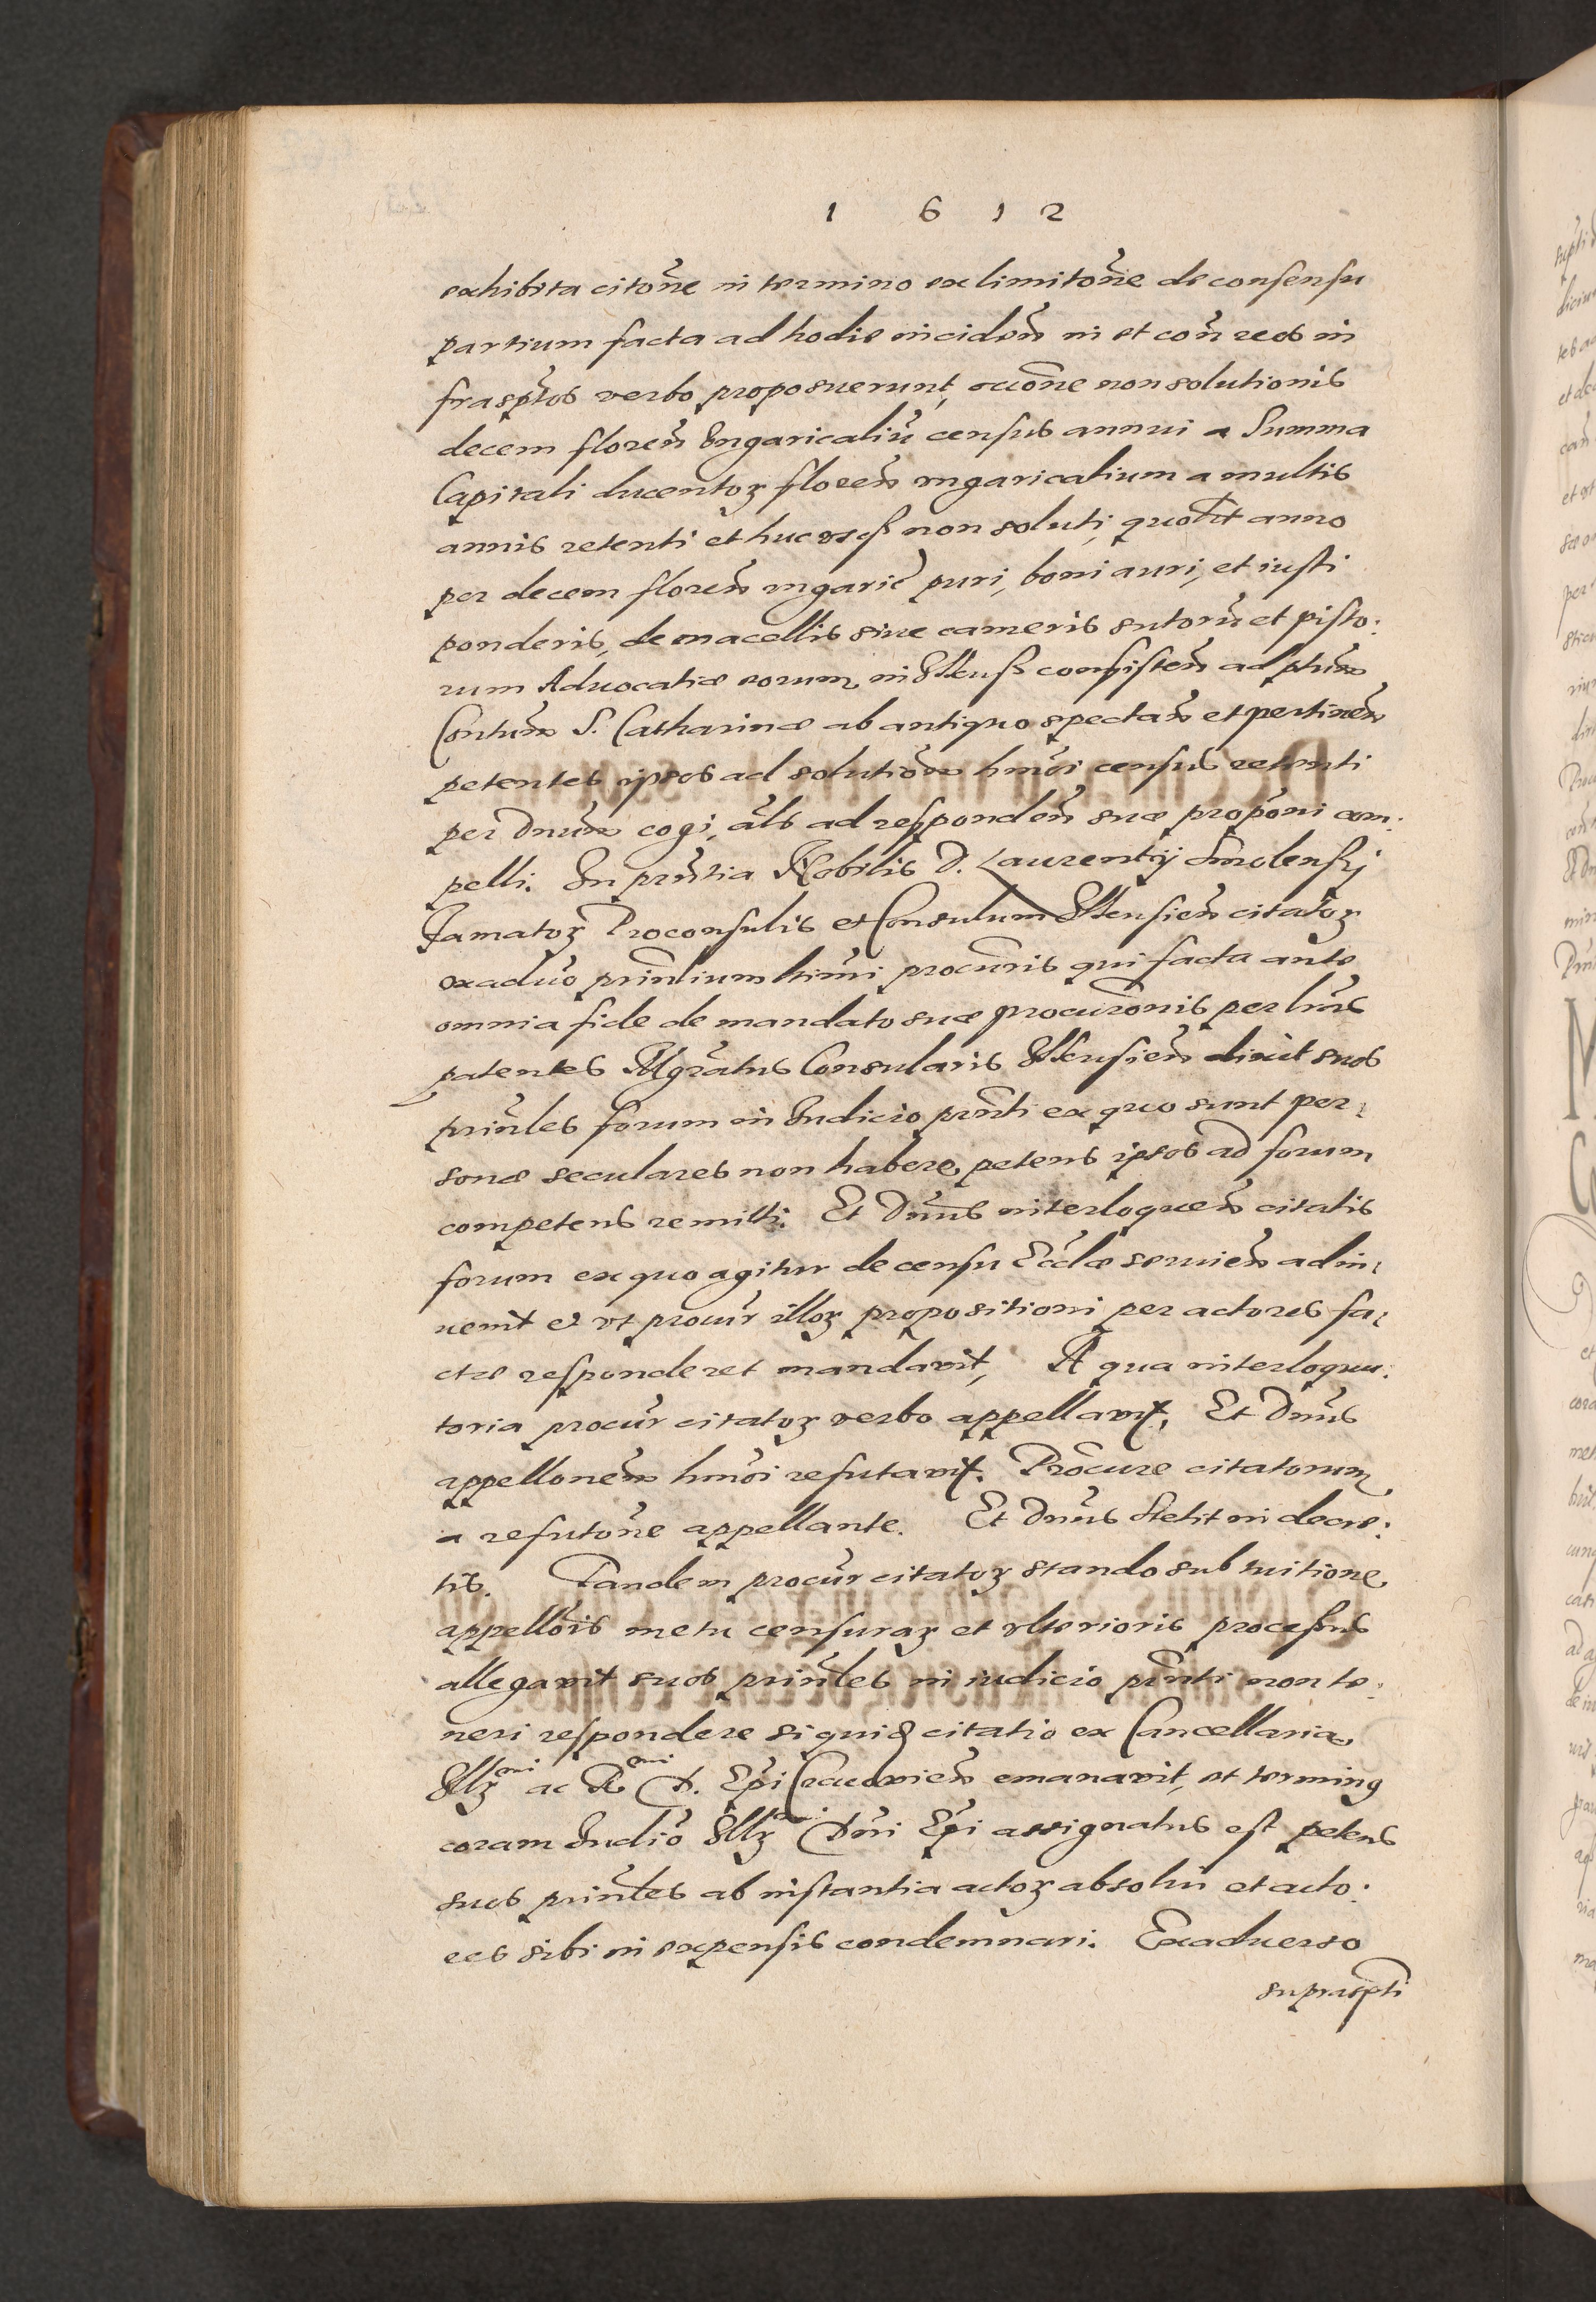 1 6 1 2
exhibita citone in termino ex limitone de consensu
partium facta ad hodie inciden in et con reos in
frasptos verbo proposuerunt, occone non solutionis
decem floren Ungaricaliu census annui a Summa
Capitali ducentoꝝ floren ungaricalium a multis
annis retenti et hucusqꝫ non soluti, quolibet anno
per decem floren ungaric puri, boni auri, et iusti
ponderis, de macellis siue cameris sutoru et pisto:
rum Aduocatiæ eorum in consisten ad
Contum S. Catharinæ ab antiquo spectan et pertinen
petentes ipsos ad solutionem hmoi census retenti
per Dnum cogi, als ad responden suæ proponi com:
pelli. In prntia Nobilis D. Laurentij Smolenskj
Famatoꝝ Proconsulis et Consulum citatoꝝ
exaduo prinlium ltimi procuris qui facta ante
omnia fide de mandato suæ procuronis per lras
patentes Mgratus Consularis dixit suos
prinles forum in Iudicio prnti ex quo sunt per:
sonæ seculares non habere, petens ipsos ad forum
competens remitti. Et Dnus interloquen citatis
forum ex quo agitur de censu Ecclæ seruien adin:
uenit et ut procur illoꝝ propositioni per actores fa:
ctæ responderet mandavit, A qua interloquu:
toria procur citatoꝝ verbo appellavit, Et Dnus
appellonem hmoi refutavit. Procure citatorum
a refutone appellante. Et Dnus stetit in decre:
tis. Tandem procur citatoꝝ stando sub tuitione
appellois metu censuraꝝ et ulterioris processus
allegavit suos prinles in iudicio prnti non te:
neri respondere siquid citatio ex Cancellaria
Illꝫmi ac Rmi D. Epi Cracovien emanavit, et terminꝯ
coram Iudio Illꝫmi Dni Epi assignatus est petens
suos prinles ab instantia actoꝝ absolui et acto:
res sibi in expensis condemnari. Exaduerso
supraspti